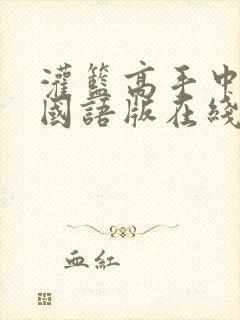 灌籃高手中
國語版在綫
血紅